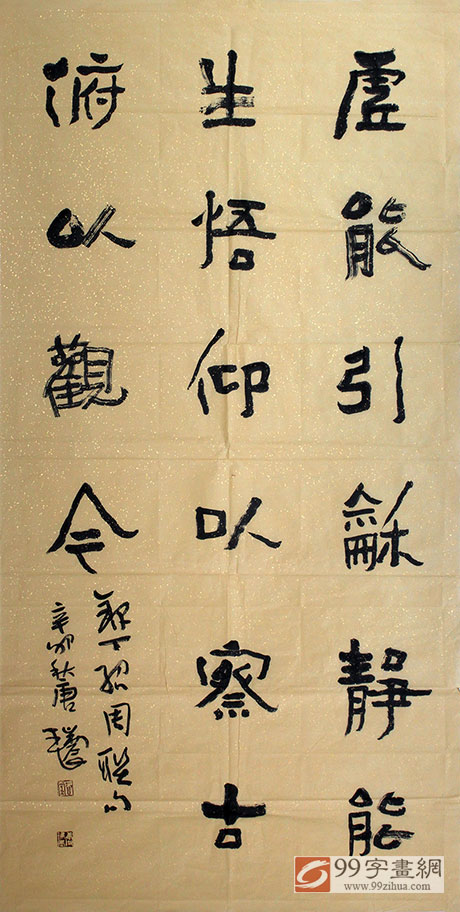 虛能引龢靜能
生悟仰以察古
俯以觀今
丁紹周聯句
辛卯秋唐
99字畫網
www.99zihua.com